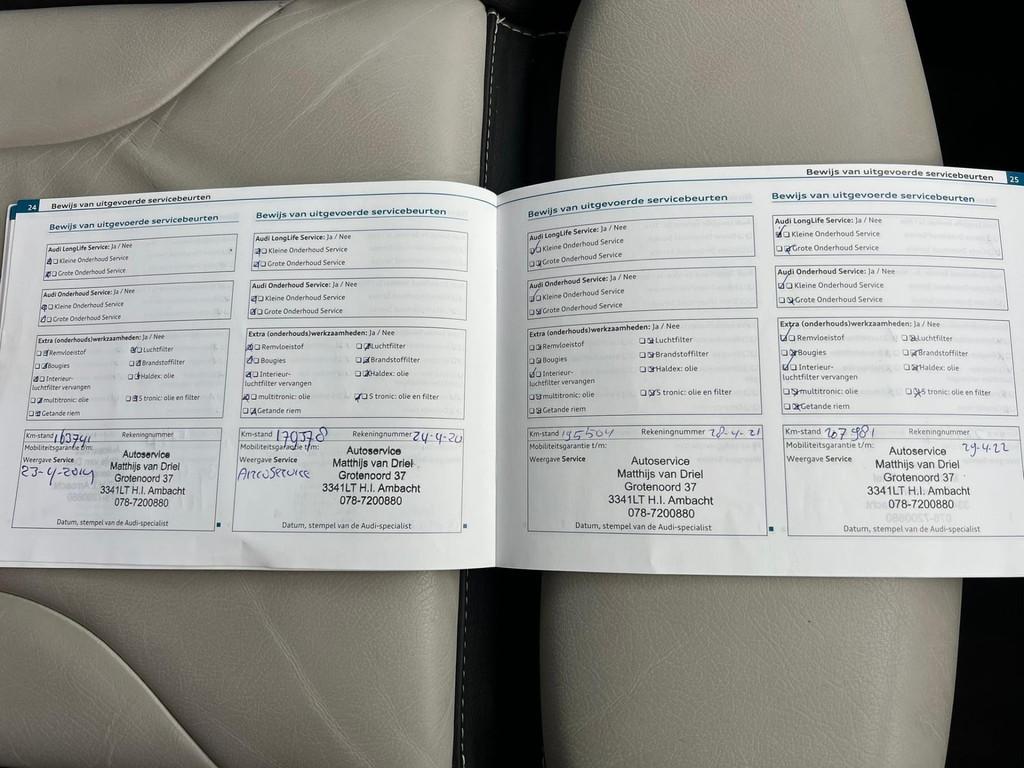 24 Bewijs van uitgevoerde servicebeurten
Bewijs van uitgevoerde servicebeurten
Audi LongLife Service: Ja / Nee
Kleine Onderhoud Service
Grote Onderhoud Service
Audi Onderhoud Service: Ja / Nee
Kleine Onderhoud Service
Grote Onderhoud Service
Extra (onderhouds)werkzaamheden: Ja / Nee
Remvloeistof Luchtfilter
Bougies Brandstoffilter
Interieur- Haldex: olie
luchtfilter vervangen
multitronic: olie S tronic: olie en filter
Getande riem
Km-stand 163741 Rekeningnummer
Mobiliteitsgarantie t/m:
Weergave Service
23-4-2019
Autoservice
Matthijs van Driel
Grotenoord 37
3341LT H.I. Ambacht
078-7200880
Datum, stempel van de Audi-specialist
Bewijs van uitgevoerde servicebeurten
Audi LongLife Service: Ja / Nee
Kleine Onderhoud Service
Grote Onderhoud Service
Audi Onderhoud Service: Ja / Nee
Kleine Onderhoud Service
Grote Onderhoud Service
Extra (onderhouds)werkzaamheden: Ja / Nee
Remvloeistof Luchtfilter
Bougies Brandstoffilter
Interieur- Haldex: olie
luchtfilter vervangen
multitronic: olie S tronic: olie en filter
Getande riem
Km-stand 179378 Rekeningnummer 24-4-20
Mobiliteitsgarantie t/m:
Weergave Service
AircoService
Autoservice
Matthijs van Driel
Grotenoord 37
3341LT H.I. Ambacht
078-7200880
Datum, stempel van de Audi-specialist
Bewijs van uitgevoerde servicebeurten 25
Bewijs van uitgevoerde servicebeurten
Audi LongLife Service: Ja / Nee
Kleine Onderhoud Service
Grote Onderhoud Service
Audi Onderhoud Service: Ja / Nee
Kleine Onderhoud Service
Grote Onderhoud Service
Extra (onderhouds)werkzaamheden: Ja / Nee
Remvloeistof Luchtfilter
Bougies Brandstoffilter
Interieur- Haldex: olie
luchtfilter vervangen
multitronic: olie S tronic: olie en filter
Getande riem
Km-stand 195504 Rekeningnummer 28-4-21
Mobiliteitsgarantie t/m:
Weergave Service
Autoservice
Matthijs van Driel
Grotenoord 37
3341LT H.I. Ambacht
078-7200880
Datum, stempel van de Audi-specialist
Bewijs van uitgevoerde servicebeurten
Audi LongLife Service: Ja / Nee
Kleine Onderhoud Service
Grote Onderhoud Service
Audi Onderhoud Service: Ja / Nee
Kleine Onderhoud Service
Grote Onderhoud Service
Extra (onderhouds)werkzaamheden: Ja / Nee
Remvloeistof Luchtfilter
Bougies Brandstoffilter
Interieur- Haldex: olie
luchtfilter vervangen
multitronic: olie S tronic: olie en filter
Getande riem
Km-stand 207981 Rekeningnummer
Mobiliteitsgarantie t/m: 29-4-22
Weergave Service
Autoservice
Matthijs van Driel
Grotenoord 37
3341LT H.I. Ambacht
078-7200880
Datum, stempel van de Audi-specialist